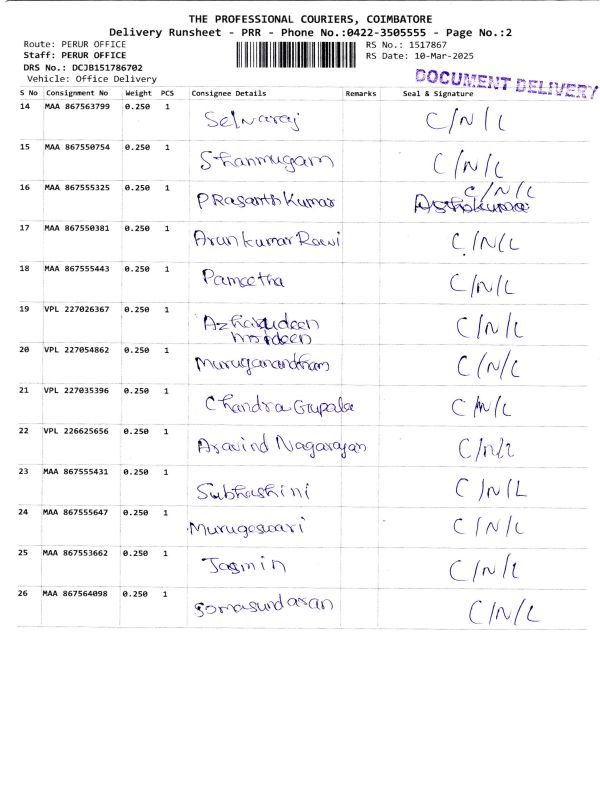 THE PROFESSIONAL COURIERS, COIMBATORE
Delivery Runsheet - PRR - Phone No.:0422-3505555 - Page No.:2
Route: PERUR OFFICE RS No.: 1517867
Staff: PERUR OFFICE RS Date: 10-Mar-2025
DRS No.: DCJB151786702
Vehicle: Office Delivery
DOCUMENT DELIVERY
S No Consignment No Weight PCS Consignee Details Remarks Seal & Signature
14 MAA 867563799 0.250 1 Selvaraj C/N/L
15 MAA 867550754 0.250 1 Shanmugam C/N/L
16 MAA 867555325 0.250 1 PRasanth Kumar C/N/L
17 MAA 867550381 0.250 1 Arun kumar C/N/L
18 MAA 867555443 0.250 1 C/N/L
19 VPL 227026367 0.250 1 Azharudeen C/N/L
20 VPL 227054862 0.250 1 Muruganandham C/N/L
21 VPL 227035396 0.250 1 Chandra C/N/L
22 VPL 226625656 0.250 1 Aravind Nagarajan C/N/L
23 MAA 867555431 0.250 1 Subhashini C/N/L
24 MAA 867555647 0.250 1 Murugeswari C/N/L
25 MAA 867553662 0.250 1 Jasmin C/N/L
26 MAA 867564098 0.250 1 Somasundaran C/N/L